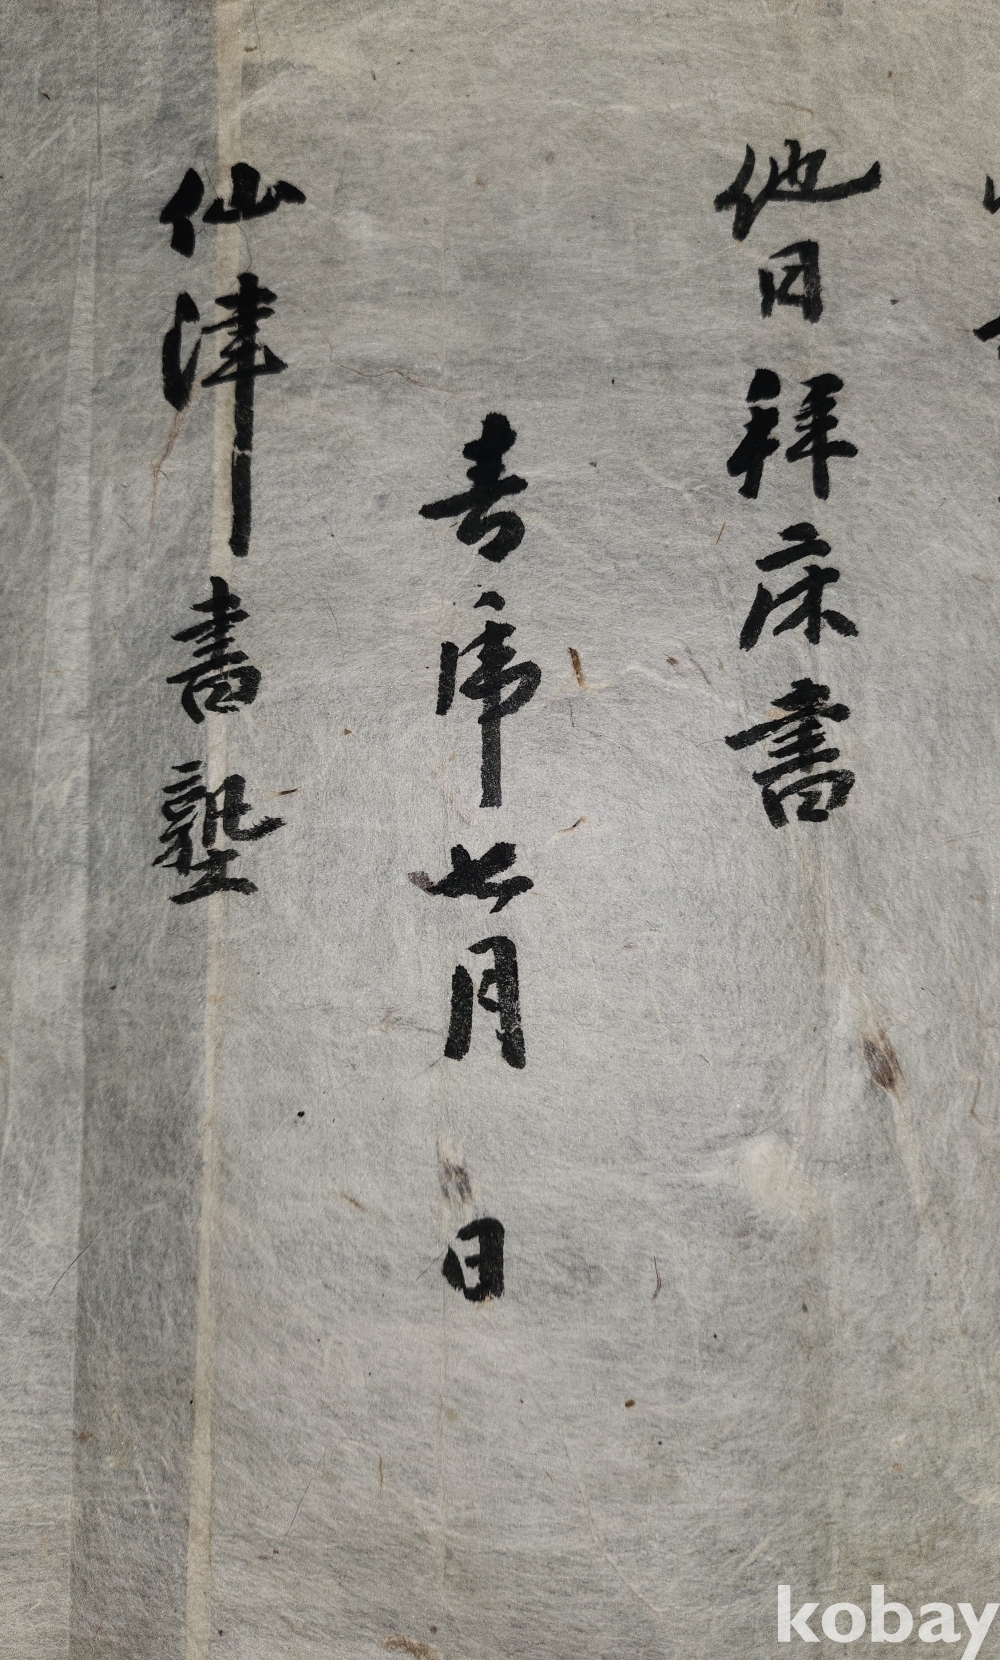 他日拜床書
青乕七月 日
仙津書塾
kobay